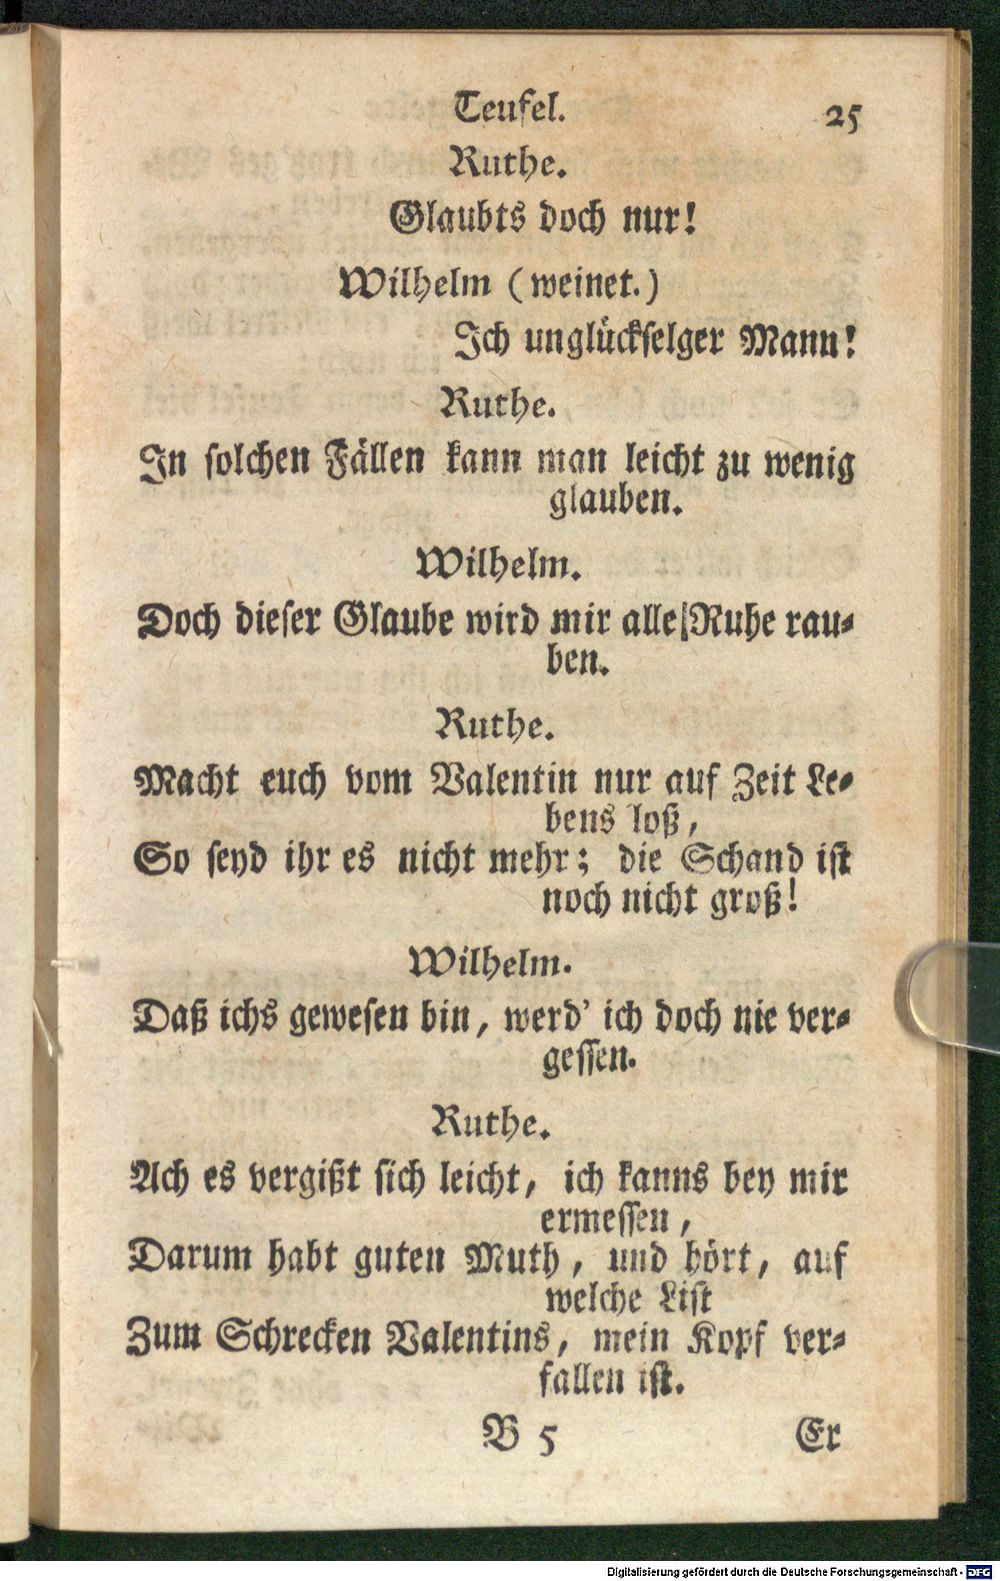 Teufel. 25
Ruthe.
Glaubts doch nur!
Wilhelm (weinet.)
Ich unglückselger Mann!
Ruthe.
In solchen Fällen kann man leicht zu wenig
glauben.
Wilhelm.
Doch dieser Glaube wird mir alle Ruhe rau-
ben.
Ruthe.
Macht euch vom Valentin nur auf Zeit Le-
bens loß,
So seyd ihr es nicht mehr; die Schand ist
noch nicht groß!
Wilhelm.
Daß ichs gewesen bin, werd' ich doch nie ver-
gessen.
Ruthe.
Ach es vergißt sich leicht, ich kanns bey mir
ermessen,
Darum habt guten Muth, und hört, auf
welche List
Zum Schrecken Valentins, mein Kopf ver-
fallen ist.
B 5 Er
Digitalisierung gefördert durch die Deutsche Forschungsgemeinschaft - DFG